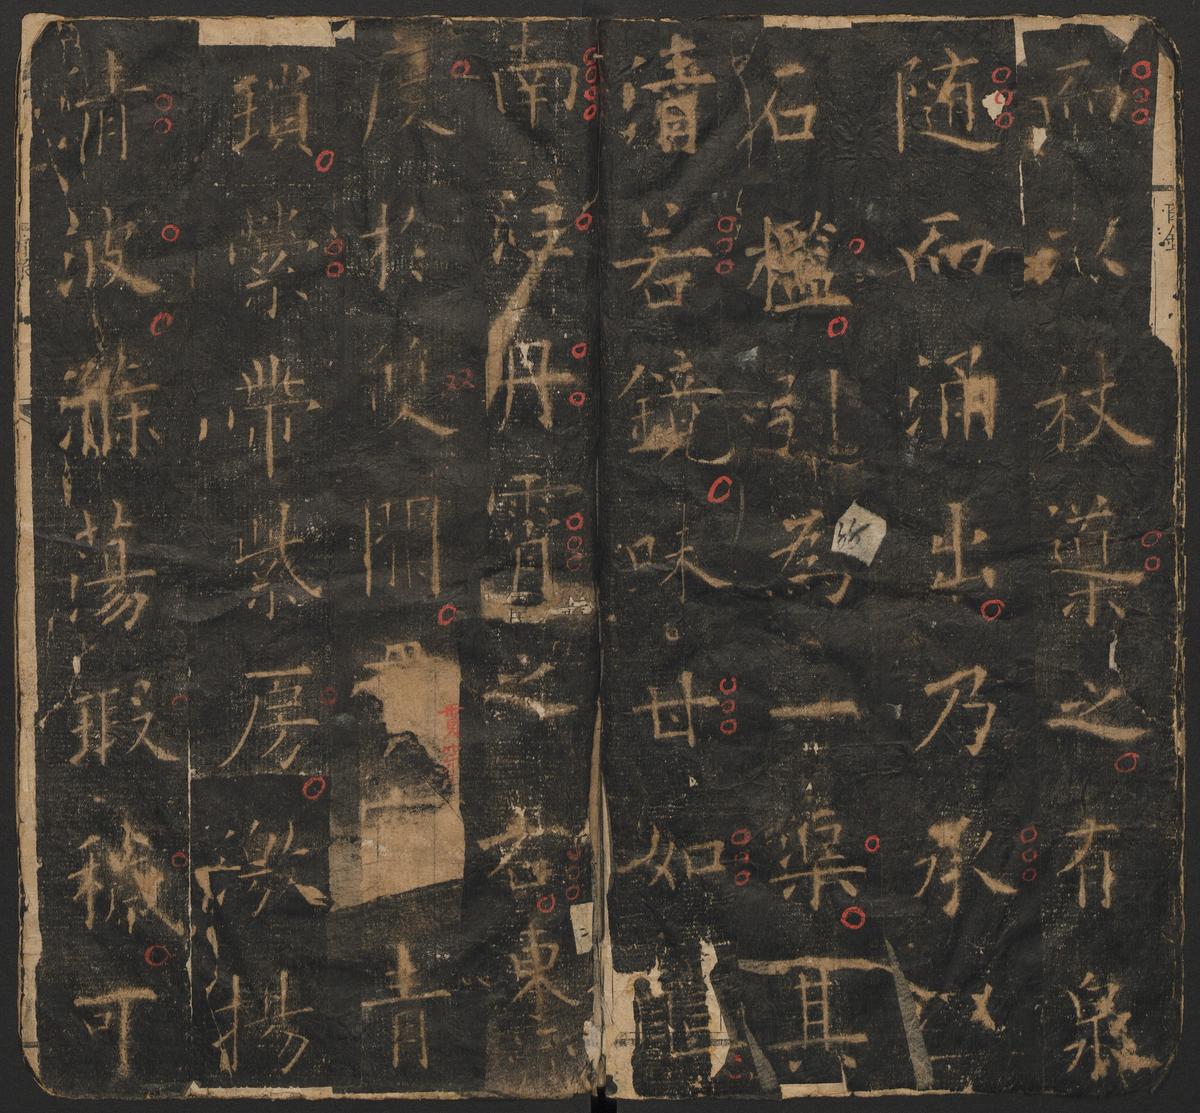 而以杖導之有泉
随而涌出乃承以
石檻引為一渠其
清若鏡味甘如醴
南注丹霄之右東
度於雙闕青
鎖縈帶紫房激揚
清波滌蕩瑕穢可